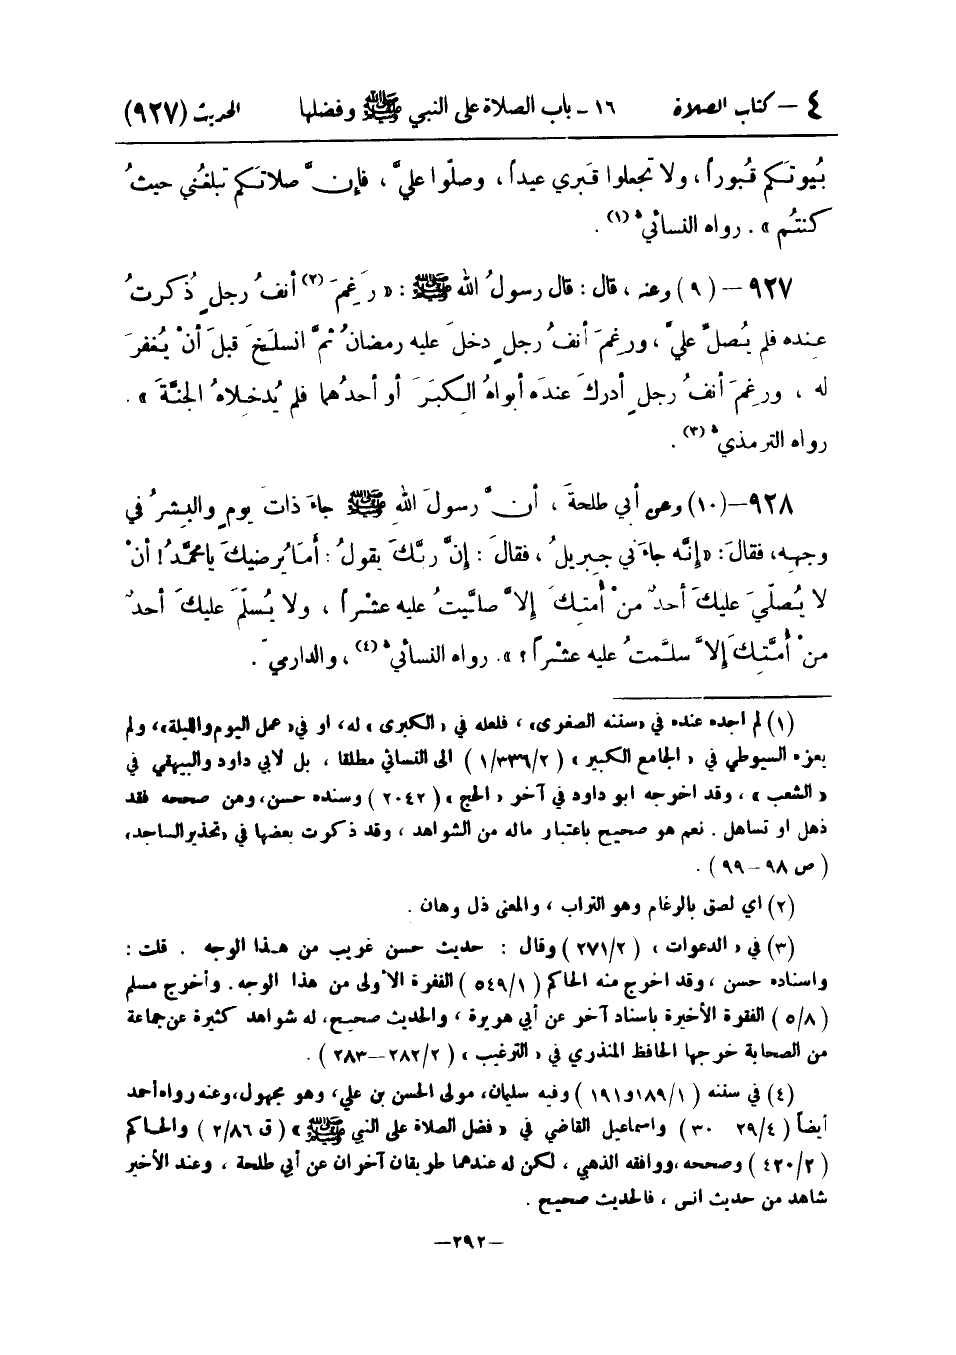 ٤ – كتاب الصلاة ١٦ – باب الصلاة على النبي ﷺ وفضلها الحديث (٩٢٧)
بُيوتَكم قُبوراً ، ولا تجعلوا قَبري عيداً ، وصلّوا عليَّ ، فإِنَّ صلاتَكم تبلغُني حيثُ
كنتُم » . رواه النسائيّ (١) .
٩٢٧ – ( ٩ ) وعنه ، قال : قال رسولُ الله ﷺ : « رَغِمَ (٢) أنفُ رجلٍ ذُكرتُ
عِنده فلم يُصلِّ عليَّ ، ورغمَ أنفُ رجلٍ دخلَ عليه رمضانُ ثمَّ انسلخَ قبلَ أنْ يُغفرَ
له ، ورغمَ أنفُ رجلٍ أدركَ عندَه أبواهُ الكِبَرَ أو أحدُهما فلم يُدخِلاهُ الجنَّةَ » .
رواه الترمذيّ (٣) .
٩٢٨ – (١٠) وعن أبي طلحةَ ، أنَّ رسولَ اللهِ ﷺ جاءَ ذاتَ يومٍ والبِشرُ في
وجهِه، فقالَ: «إنَّه جاءَني جبريلُ ، فقالَ : إنَّ ربَّكَ يقولُ : أمَا يُرضيكَ يا محمَّدُ! أنْ
لا يُصلّيَ عليكَ أحدٌ منْ أُمتِكَ إلاَّ صلَّيتُ عليه عشْراً ، ولا يُسلّمَ عليكَ أحدٌ
منْ أُمَّتِكَ إلاَّ سلَّمتُ عليه عشْراً ؟ ». رواه النسائيّ (٤) ، والدارميّ .
(١) لم اجده عنده في «سننه الصغرى» ، فلعله في « الكبرى » له، او في « عمل اليوم والليلة»، ولم
يعزه السيوطي في « الجامع الكبير » ( ١/٣٣٦/٢ ) الى النسائي مطلقا ، بل لابي داود والبيهقي في
« الشعب » ، وقد اخرجه ابو داود في آخر « الحج » ( ٢٠٤٢ ) وسنده حسن، ومن صححه فقد
ذهل او تساهل . نعم هو صحيح باعتبار ماله من الشواهد ، وقد ذكرت بعضها في «تحذير الساجد»
( ص ٩٨ – ٩٩ ) .
(٢) اي لصق بالرغام وهو التراب ، والمعنى ذل وهان .
(٣) في « الدعوات » ( ٢٧١/٢ ) وقال : حديث حسن غريب من هذا الوجه . قلت :
واسناده حسن ، وقد اخرج منه الحاكم ( ٥٤٩/١ ) الفقرة الأولى من هذا الوجه . وأخرج مسلم
( ٥/٨ ) الفقرة الأخيرة باسناد آخر عن أبي هريرة ، والحديث صحيح، له شواهد كثيرة عن جماعة
من الصحابة خرجها الحافظ المنذري في « الترغيب » ( ٢٨٢/٢–٢٨٣ ) .
(٤) في سننه ( ١٨٩/١ و١٩١ ) وفيه سليمان، مولى الحسن بن علي، وهو مجهول، وعنه رواه أحمد
أيضاً ( ٢٩/٤ ٣٠ ) واسماعيل القاضي في « فضل الصلاة على النبي ﷺ » ( ق ٢/٨٦ ) والحاكم
( ٤٢٠/٢ ) وصححه ،ووافقه الذهبي ، لكن له عندهما طريقان آخران عن أبي طلحة ، وعند الأخير
شاهد من حديث انس ، فالحديث صحيح .
–٢٩٢–